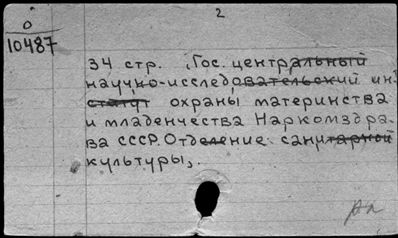 2
О
10487
34 стр. (Гос. центральный
научно-исследовательский ин-
ститут охраны материнства
и младенчества Наркомздра-
ва СССР. Отделение санитарной
культуры).